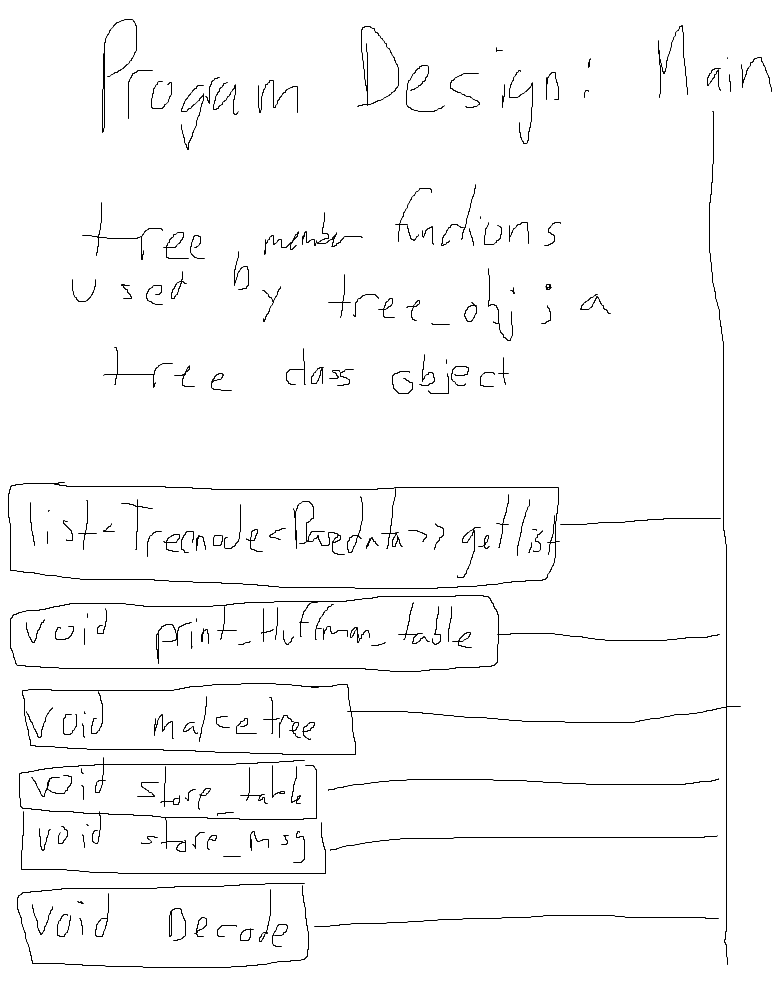 Program Design: Main
tree member functions
used by tree_obj; a
tree class object
list<Treenode<Basedata>> getlist
void print_Huffman_table
void maketree
void store_table
void store_msg
void Decode